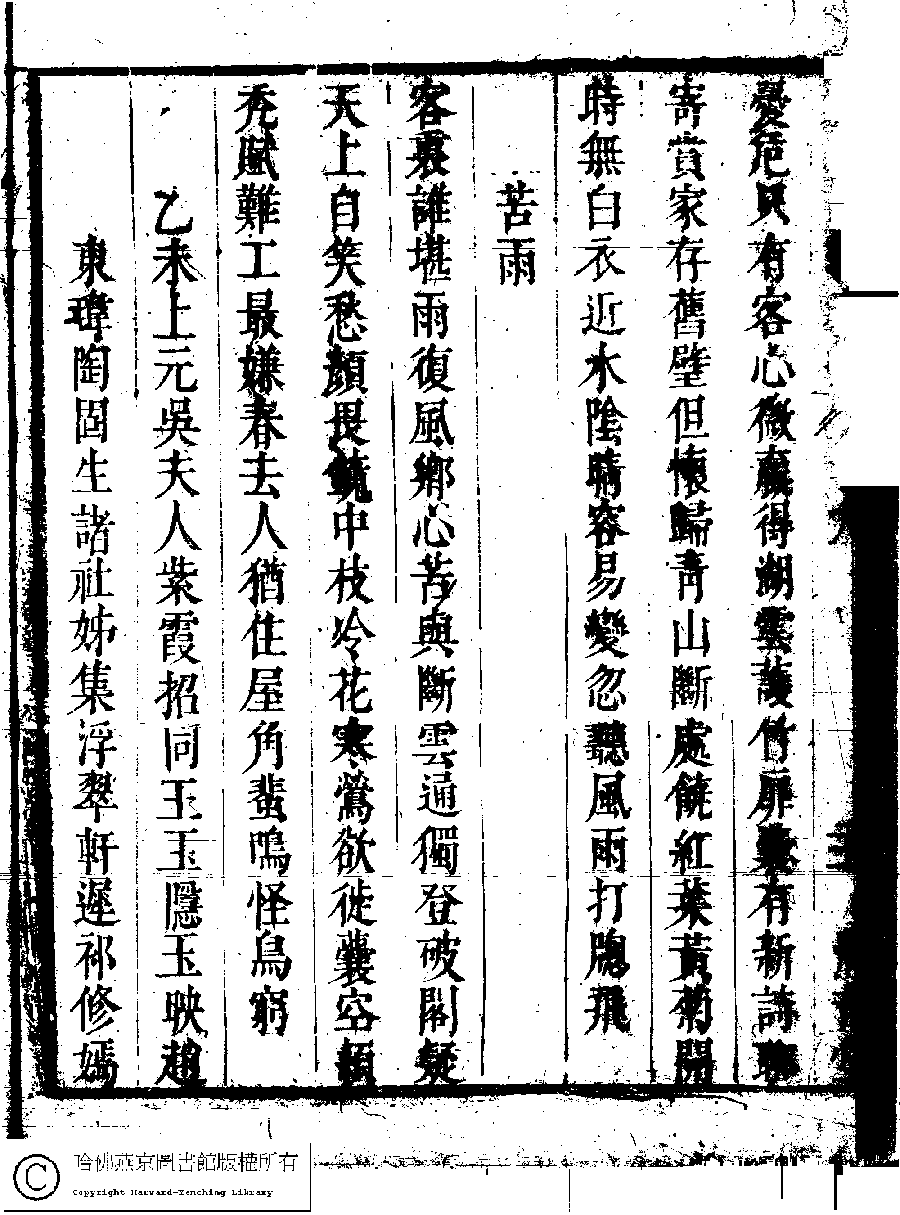 憂危只有客心微贏得湖雲護竹扉囊有新詩聊
寄賞家存舊壁但懷歸青山斷處饒紅葉黃菊開
時無白衣近水陰晴容易變忽聽風雨打牕飛
苦雨
客裏誰堪雨復風鄉心苦與斷雲通獨登破閣疑
天上自笑愁顏畏鏡中枝冷花寒鶯欲徙囊空頴
禿賦難工最嫌春去人猶住屋角蜚鳴怪鳥窮
乙未上元吳夫人紫霞招同王玉隱玉映趙
東瑋陶固生諸社姊集浮翠軒遲祁修嫣
哈佛燕京圖書館版權所有
Copyright Harvard-Yenching Library